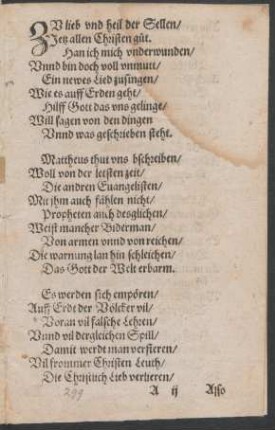 ZV lieb vnd heil der Sellen/
Jetz allen Christen güt.
Han ich mich vnderwunden/
Vnnd bin doch voll vnmutt/
Ein newes Lied zusingen/
Wie es auff Erden geht/
Hilff Gott das vns gelinge/
Will sagen von den dingen
Vnnd was geschrieben steht.
Mattheus thut vns bschreiben/
Woll von der letsten zeit/
Die andren Euangelisten/
Mit jhm auch fählen nicht/
Propheten auch desglichen/
Weist mancher Biderman/
Von armen vnnd von reichen/
Die warnung lan hin schleichen/
Das Gott der Welt erbarm.
Es werden sich empören/
Auff Erdt der Völcker vil/
Voran vil falsche Lehren/
Vnnd vil dergleichen Spill/
Damit werdt man verfieren/
Vil frommer Christen Leuth/
Die Christlich Lieb verlieren/
A ij Also
299